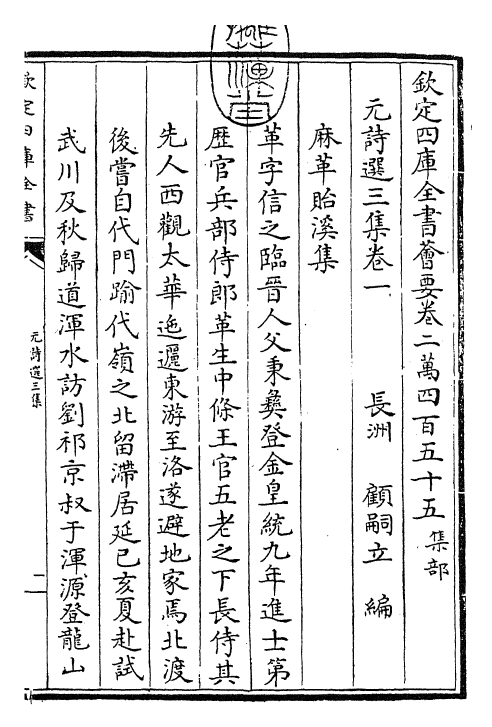 欽定四庫全書薈要卷二萬四百五十五 集部
元詩選三集卷一 長洲 顧嗣立 編
麻革貽溪集
革字信之臨晉人父秉彝登金皇統九年進士第
歷官兵部侍郎革生中條王官五老之下長侍其
先人西觀太華迤邐東游至洛遂避地家焉北渡
後嘗自代門踰代嶺之北留滯居延己亥夏赴試
武川及秋歸道渾水訪劉祁京叔于渾源登龍山
欽定四庫全書
元詩選三集
二